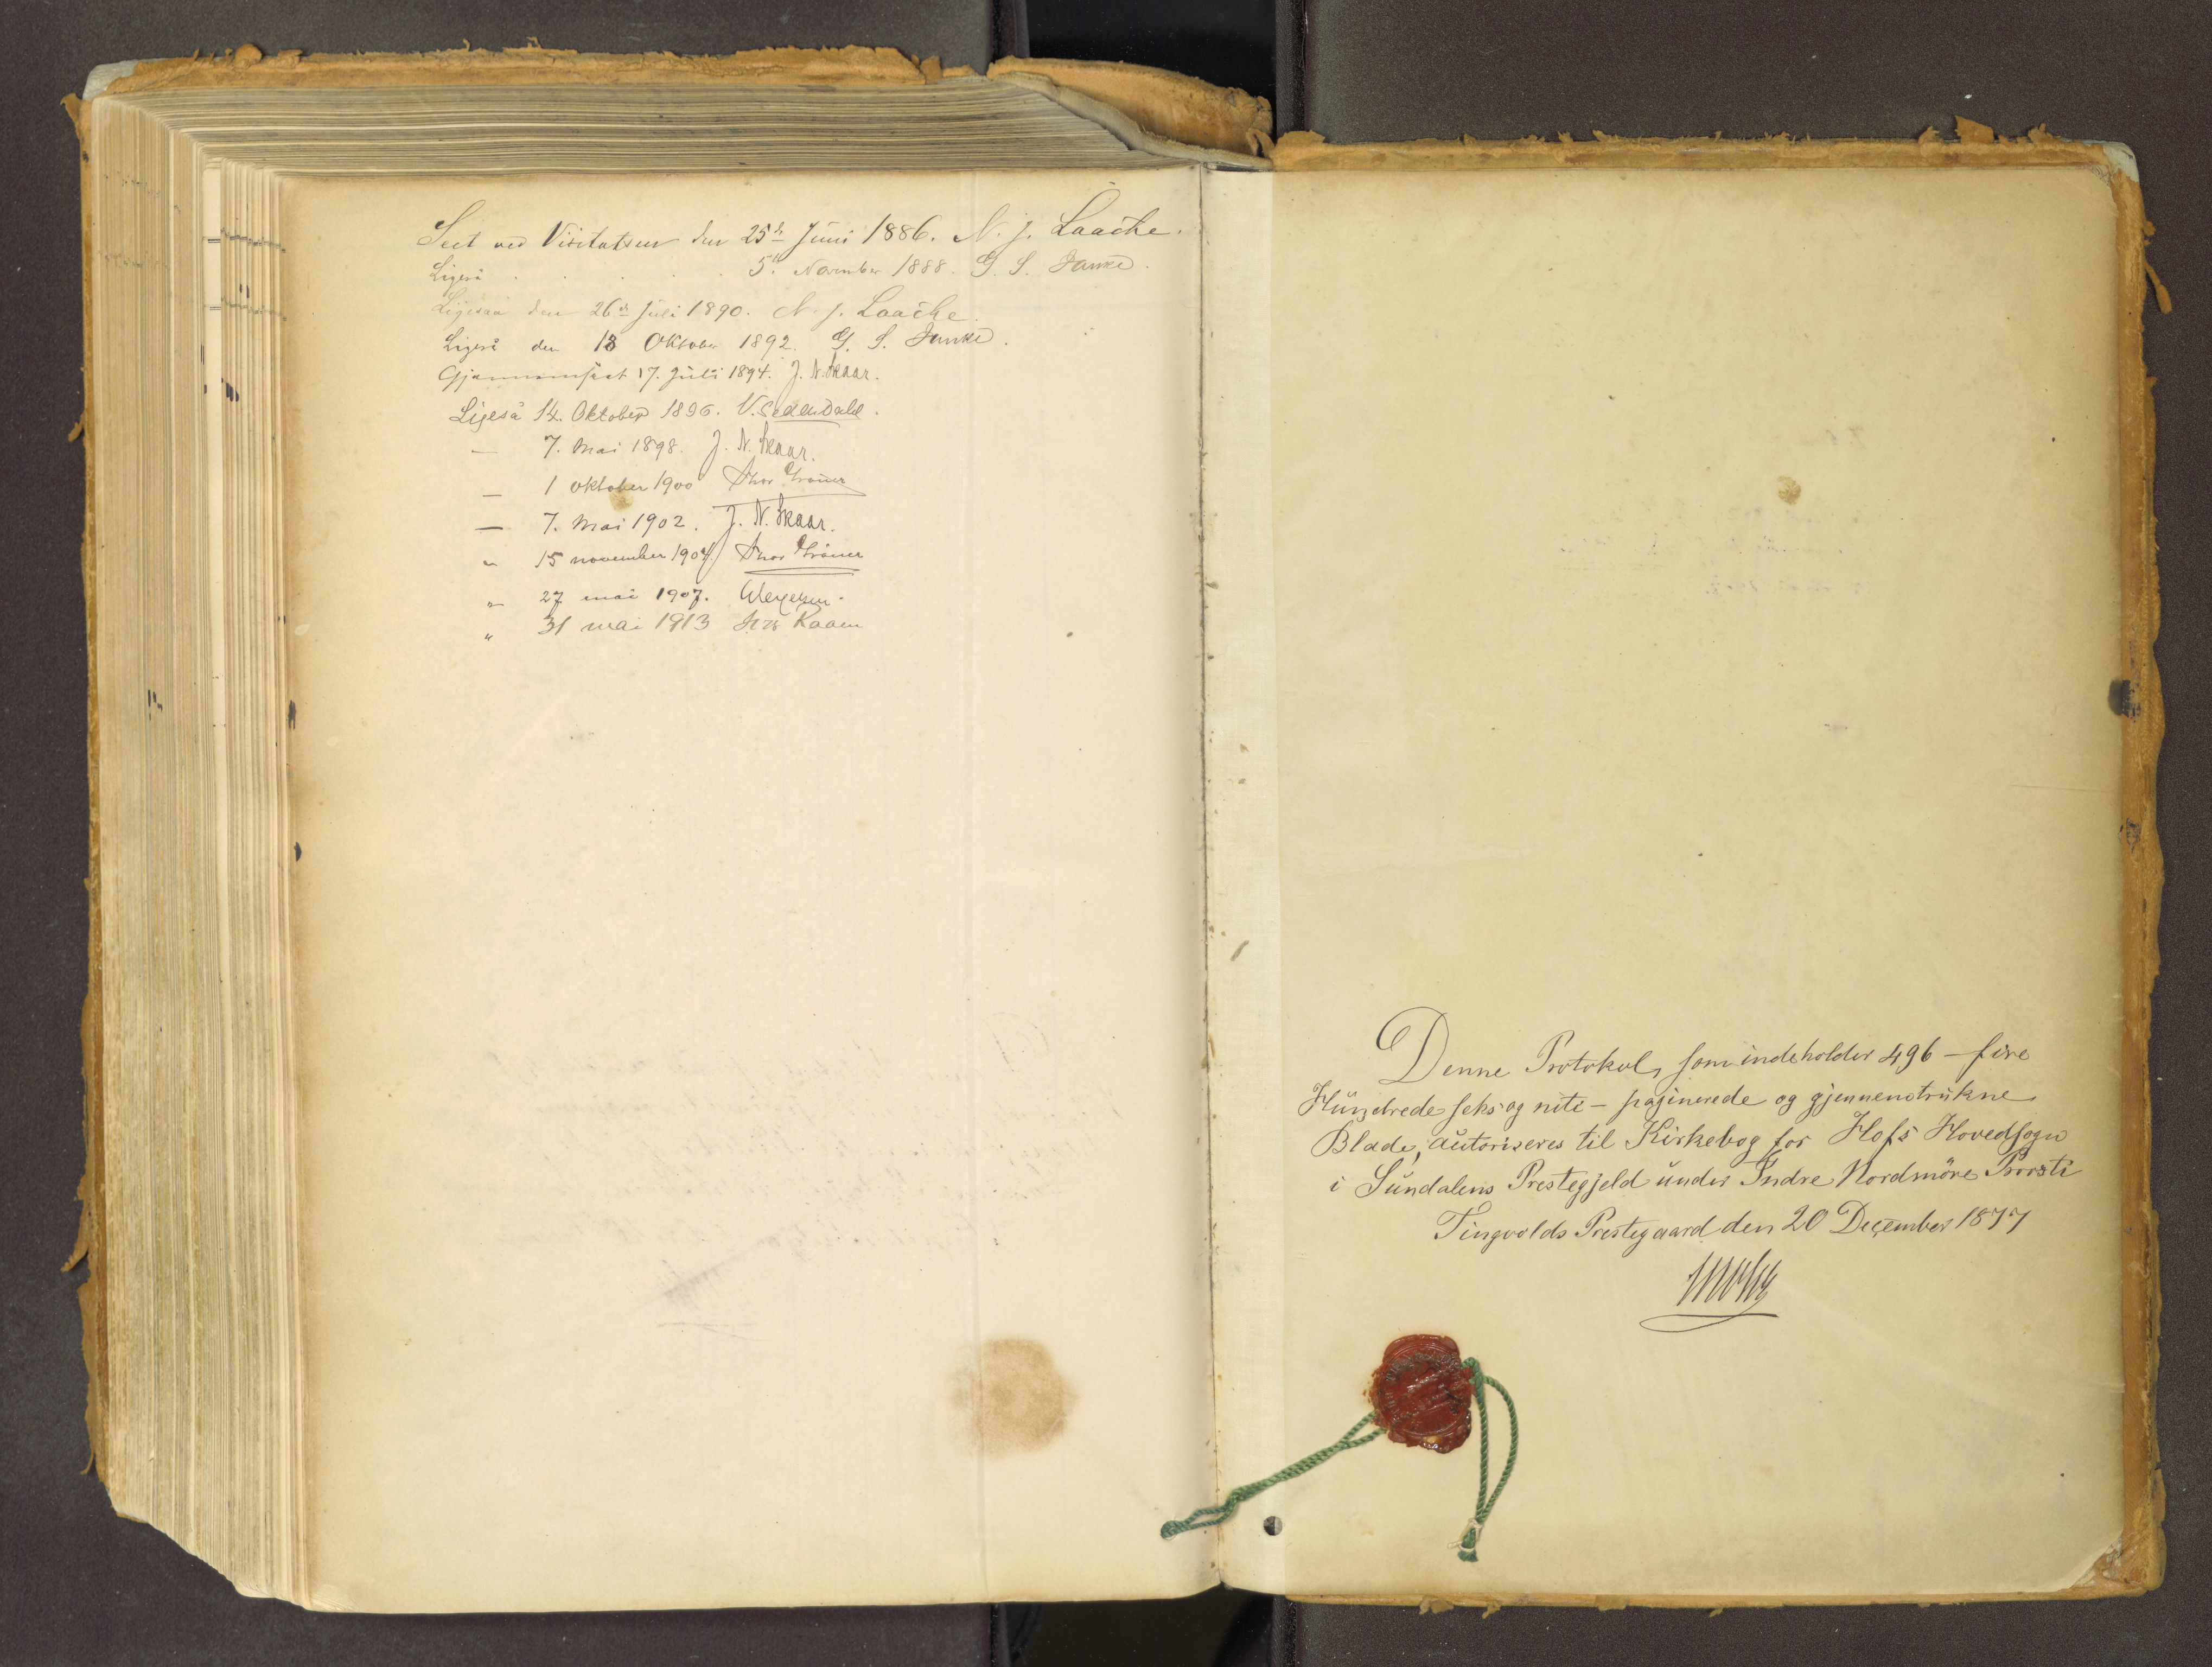 Seet ved Visitatsen den 25de Juni 1886. N. J. Laache.
Ligeså . . . . . 5te November 1888. G. S.
Ligesaa den 26de Juli 1890. N. J. Laache.
Ligeså den 18 Oktober 1892. G. S.
Gjennemseet 17. Juli 1894. J. N. Skaar.
Ligeså 14. Oktober 1896.
— 7. Mai 1898. J. N. Skaar.
— 1 oktober 1900 Thor Gröner
— 7. Mai 1902. J. N. Skaar.
" 15 november 1904 Thor Gröner
" 27 mai 1907. Wexelsen.
" 31 mai 1913 Kaarn
Denne Protokol, som indeholder 496 – fire
Hundrede seks og niti – paginerede og gjennemtrukne
Blade, autoriseres til Kirkebog for Hofs Hovedsogn
i Sundalens Prestegjeld under Indre Nordmöre Provsti
Tingvolds Prestegaard den 20 December 1877